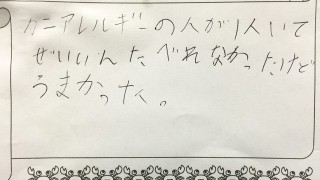 カニアレルギーの人が1人いて
ぜいいんたべれなかったけど
うまかった。